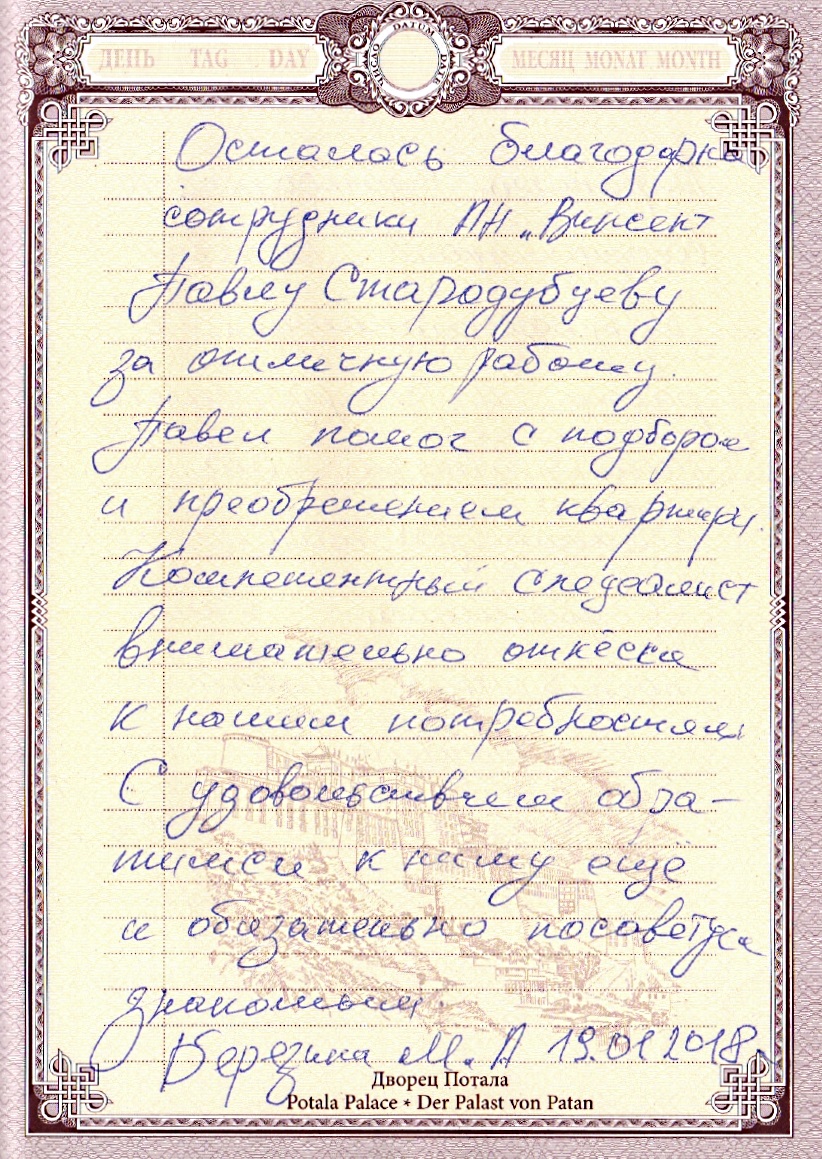 ДЕНЬ TAG DAY DATUM DATE МЕСЯЦ MONAT MONTH
Осталась благодарна
сотруднику АН „Винсент
Павлу Стародубцеву
за отличную работу.
Павел помог с подбором
и преобретением квартиры.
Компетентный специалист
внимательно отнёсся
к нашим потребностям
С удовольствием обра-
тимся к нему ещё
и обязательно посоветуем
знакомым.
Березина М. А 19.01 2018г
Дворец Потала
Potala Palace * Der Palast von Patan